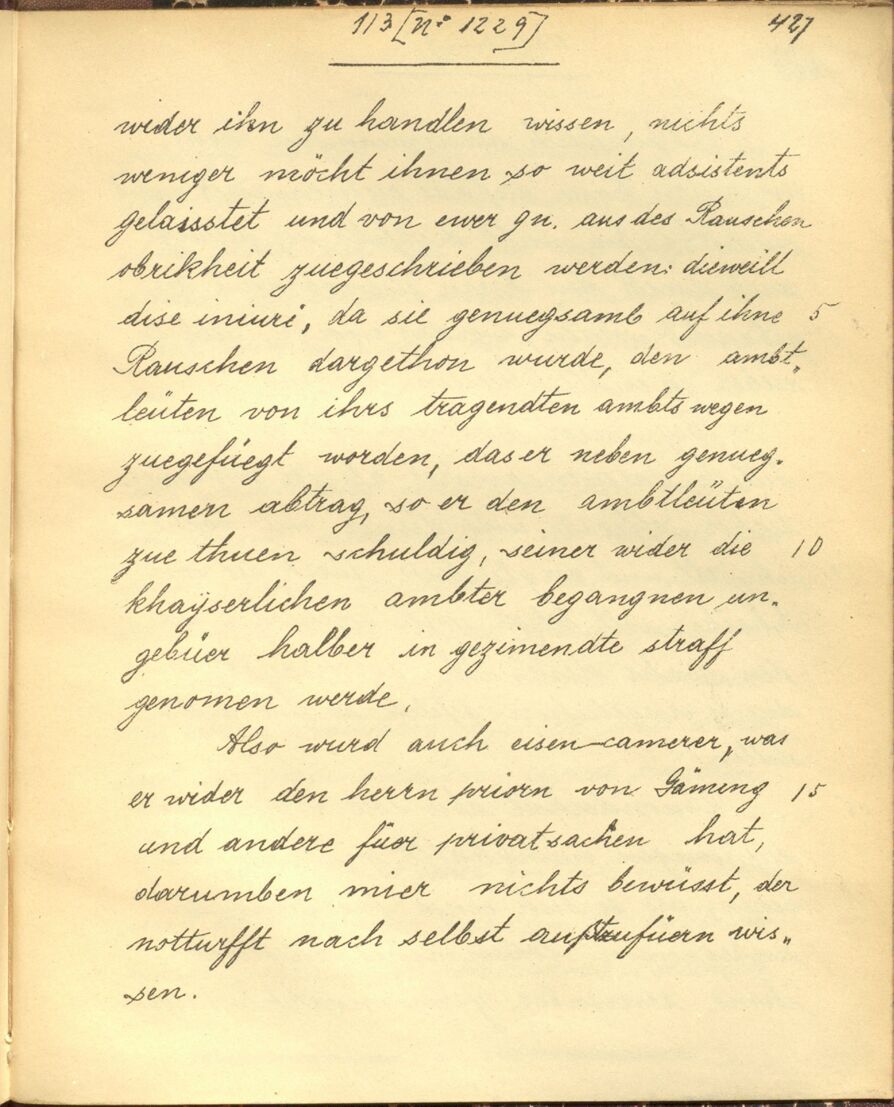 113 [No 1229] 427
wider ihn zu handlen wissen, nichts
weniger möcht ihnen so weit adsistents
gelaisstet und von ewer gn. aus des Rauschen
obrikheit zuegeschrieben werden: dieweill
dise iniuri, da sie genuegsamb auf ihne 5
Rauschen dargethon wurde, den ambt„
leüten von ihrs tragendten ambts wegen
zuegefüegt worden, das er neben genueg-
samen abtrag, so er den ambtleüten
zue thuen schuldig, seiner wider die 10
khaÿserlichen ambter begangnen un-
gebüer halber in gezimendte straff
genomen werde.
Also wurd auch eisen-camerer, was
er wider den herrn priorn von Gäming 15
und andere füer privatsachen hat,
darumben mier nichts bewüsst, der
notturfft nach selbst aufzufüern wis„
sen.